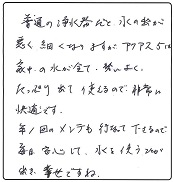 普通の浄水器だと 水の出が
悪く 細くなりますが アクアスは
家中の水が全て 勢いよく
たっぷり 出て 使えるので 非常に
快適です。
年1回のメンテも 行なって下さるので
毎日 安心して、水を使う
出来 幸せですね。